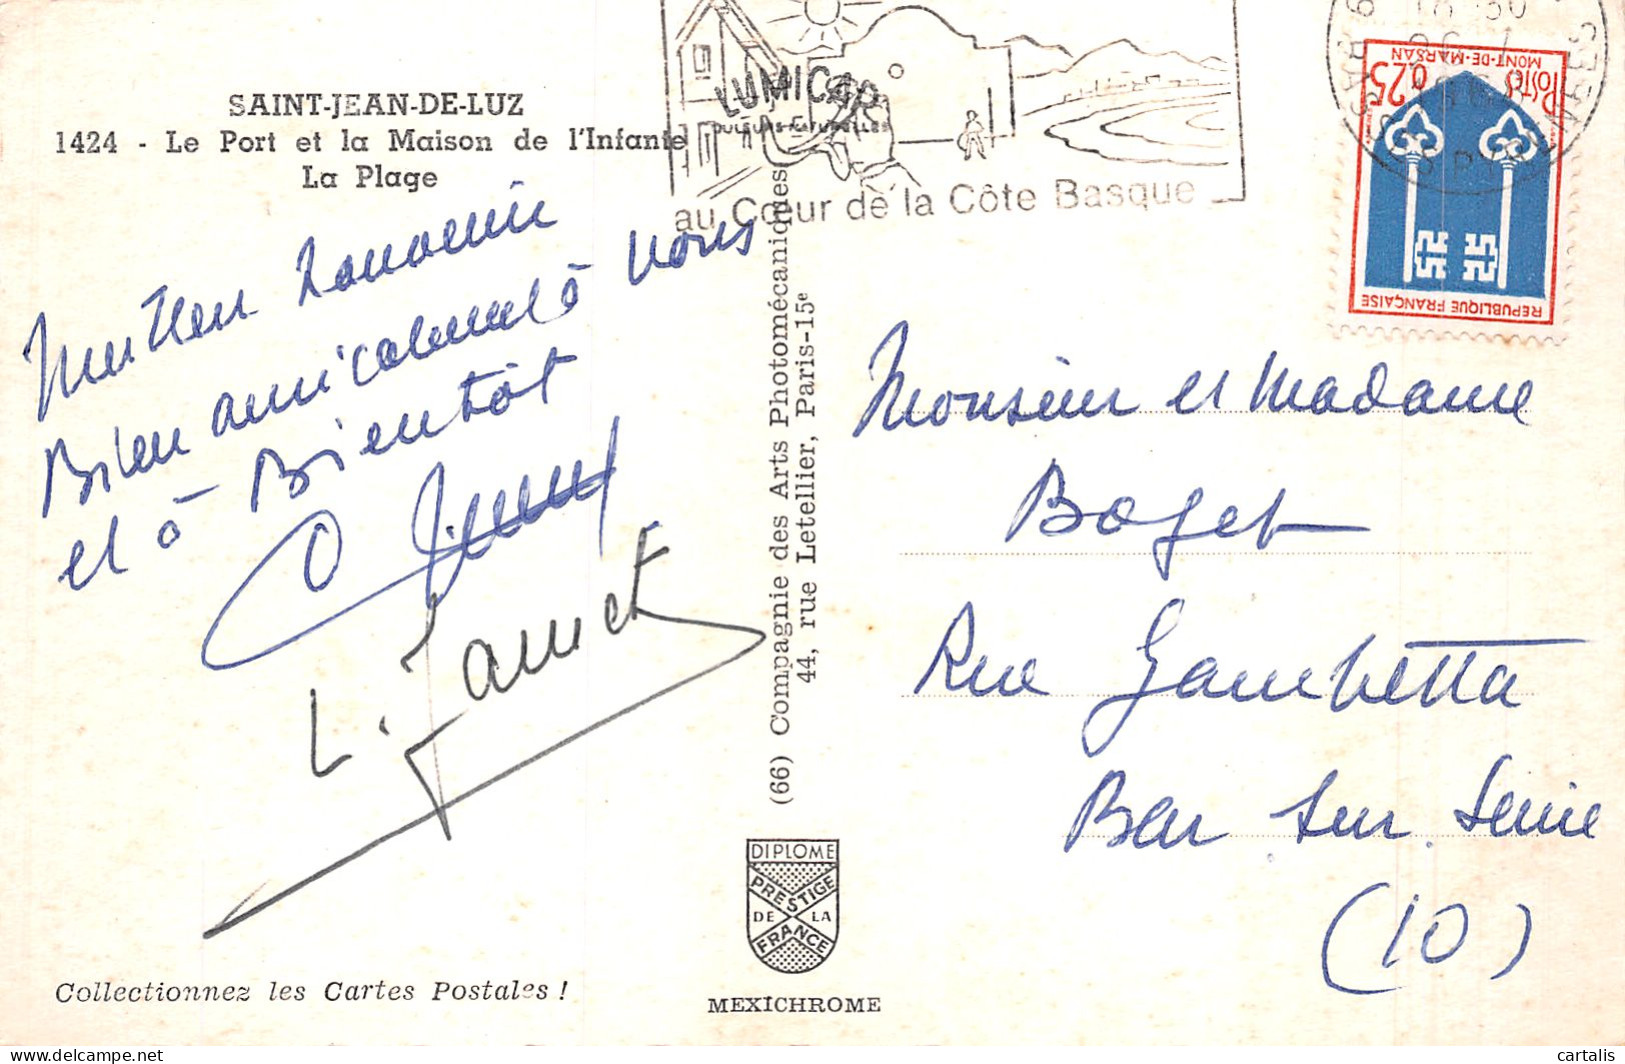 SAINT-JEAN-DE-LUZ
1424 - Le Port et la Maison de l'Infante
La Plage
LUMICAP
COULEURS NATURELLES
au Cœur de la Côte Basque
18 30
POSTES
0,25
MONT-DE-MARSAN
REPUBLIQUE FRANÇAISE
Meilleur Souvenir
Bien amicalement à vous
et à Bientôt
L. Janict
(66) Compagnie des Arts Photomécaniques
44, rue Letellier, Paris-15e
Monsieur et Madame
Boget
Rue Gambetta
Bar sur Seine
(10)
DIPLOME
PRESTIGE
DE LA
FRANCE
Collectionnez les Cartes Postales !
MEXICHROME
cartalis